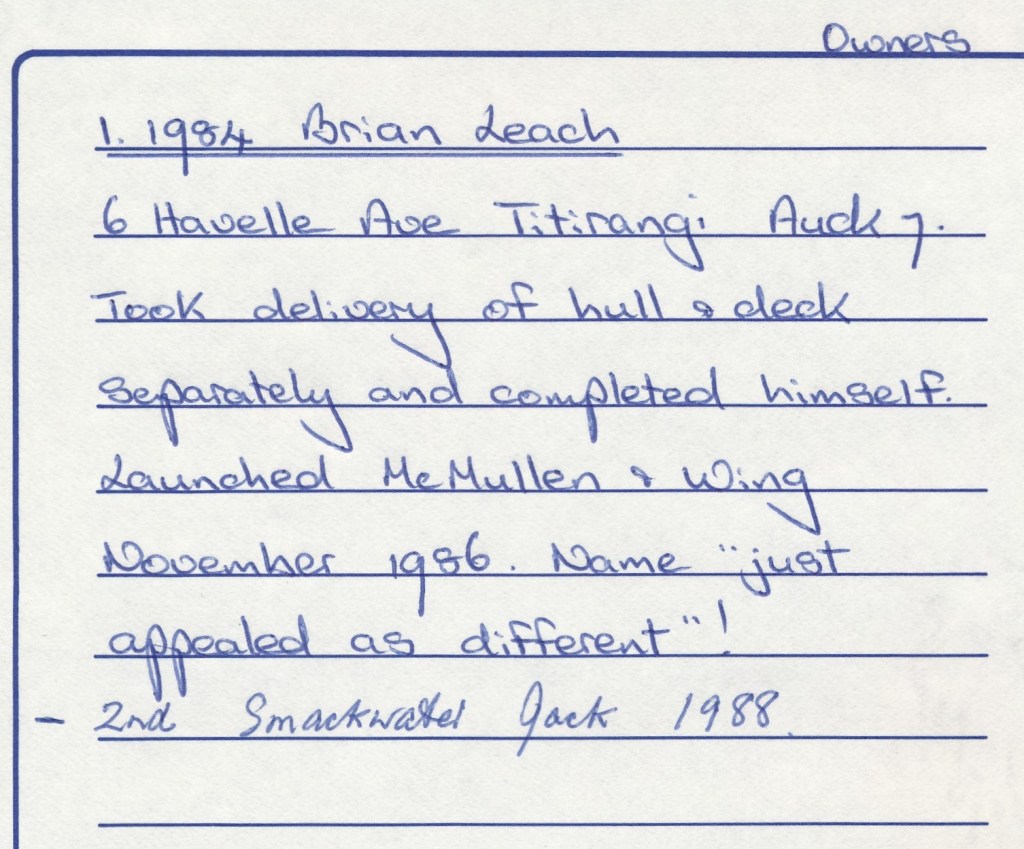 Owners
1. 1984 Brian Leach
6 Havelle Ave Titirangi Auck 7.
Took delivery of hull & deck
separately and completed himself.
Launched McMullen & Wing
November 1986. Name "just
appealed as different"!
- 2nd Smackwater Jack 1988.